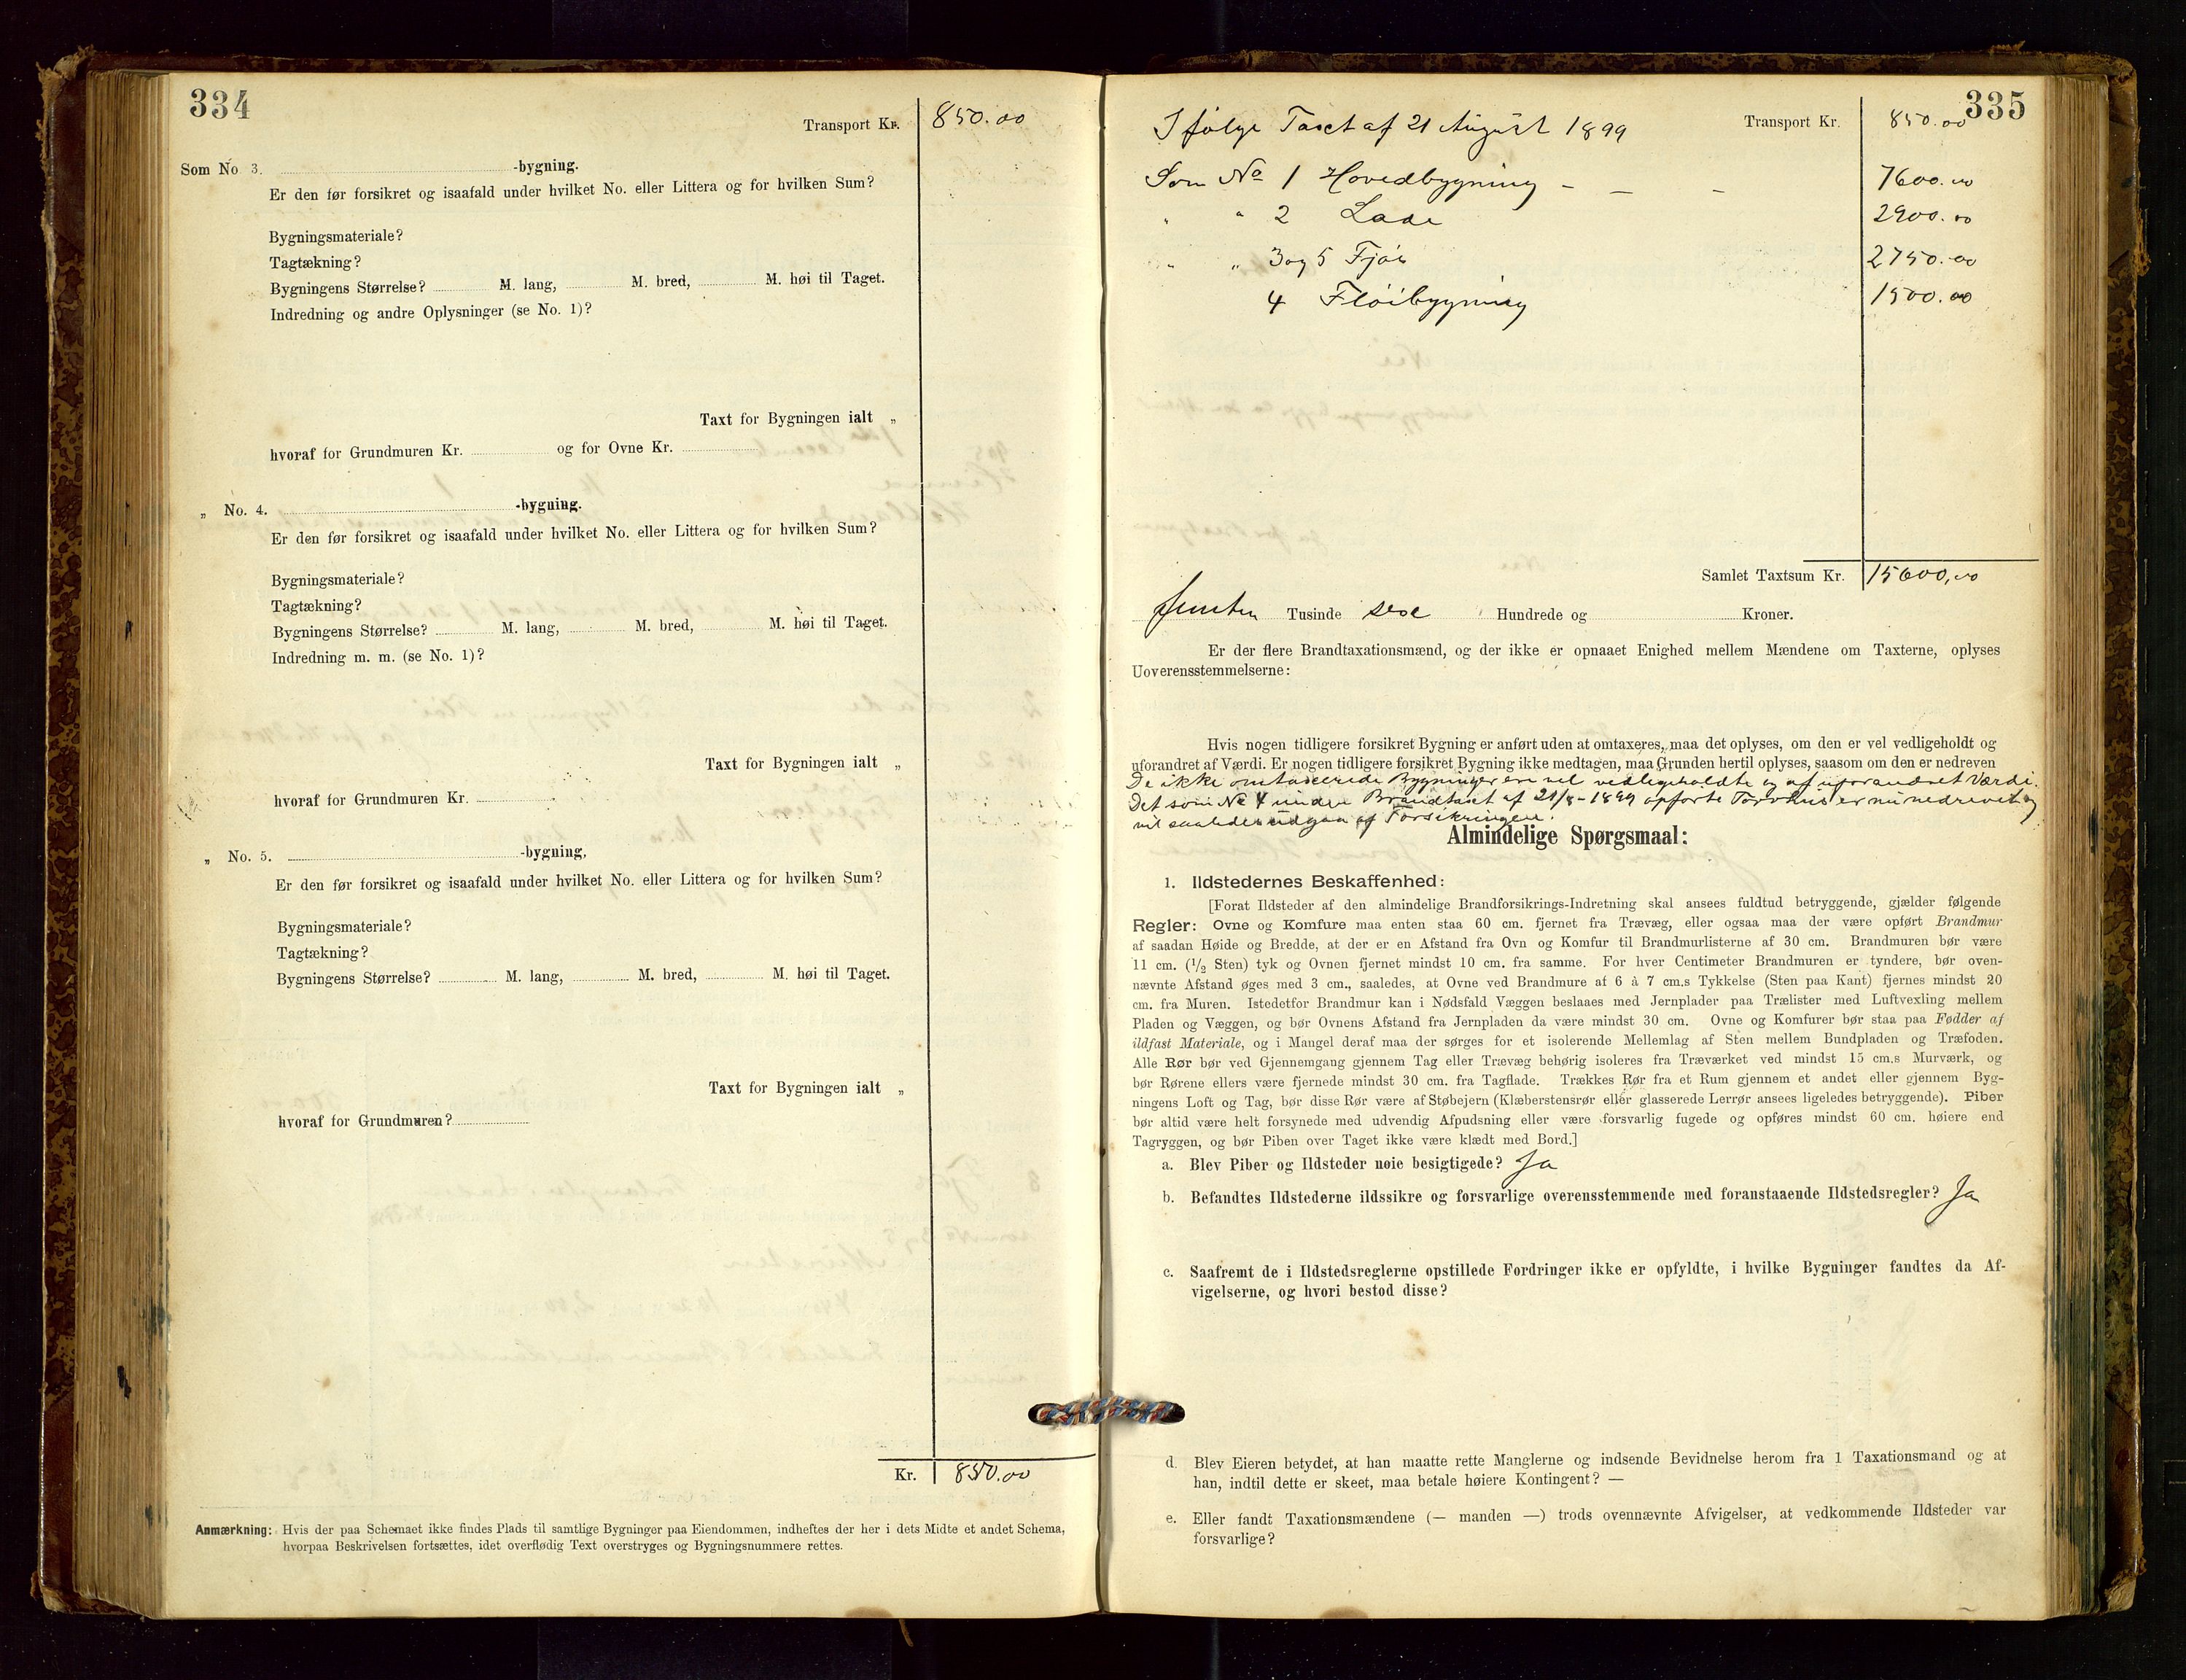 334
Transport Kr. 850.00
Som No. 3. -bygning.
Er den før forsikret og isaafald under hvilket No. eller Littera og for hvilken Sum?
Bygningsmateriale?
Tagtækning?
Bygningens Størrelse? M. lang, M. bred, M. høi til Taget.
Indredning og andre Oplysninger (se No. 1)?
Taxt for Bygningen ialt „
hvoraf for Grundmuren Kr. og for Ovne Kr.
„ No. 4. -bygning.
Er den før forsikret og isaafald under hvilket No. eller Littera og for hvilken Sum?
Bygningsmateriale?
Tagtækning?
Bygningens Størrelse? M. lang, M. bred, M. høi til Taget.
Indredning m. m. (se No. 1)?
Taxt for Bygningen ialt „
hvoraf for Grundmuren Kr.
„ No. 5. -bygning,
Er den før forsikret og isaafald under hvilket No. eller Littera og for hvilken Sum?
Bygningsmateriale?
Tagtækning?
Bygningens Størrelse? M. lang, M. bred, M. høi til Taget.
Taxt for Bygningen ialt „
hvoraf for Grundmuren?
Kr. 850.00
Anmærkning: Hvis der paa Schemaet ikke findes Plads til samtlige Bygninger paa Eiendommen, indheftes der her i dets Midte et andet Schema,
hvorpaa Beskrivelsen fortsættes, idet overflødig Text overstryges og Bygningsnummere rettes.
335
Ifølge Taxt af 21 August 1899 Transport Kr. 850.00
Som No 1 Hovedbygning - - - 7600.00
" " 2 Lade 2900.00
" " 3 og 5 Fjøs 2750.00
4 Fløibygning 1500.00
Samlet Taxtsum Kr. 15600,00
Femten Tusinde sex Hundrede og Kroner.
Er der flere Brandtaxationsmænd, og der ikke er opnaaet Enighed mellem Mændene om Taxterne, oplyses
Uoverensstemmelserne:
Hvis nogen tidligere forsikret Bygning er anført uden at omtaxeres, maa det oplyses, om den er vel vedligeholdt og
uforandret af Værdi. Er nogen tidligere forsikret Bygning ikke medtagen, maa Grunden hertil oplyses, saasom om den er nedreven
De ikke omtaxerede Bygninger ere vel vedligeholdte og af uforandret Værdi.
Det som No 4 under Brandtaxt af 21/8-1899 opførte Torvhus er nu nedrevet og
vil saaledes udgaa af Forsikringen.
Almindelige Spørgsmaal:
1. Ildstedernes Beskaffenhed:
[Forat Ildsteder af den almindelige Brandforsikrings-Indretning skal ansees fuldtud betryggende, gjælder følgende
Regler: Ovne og Komfure maa enten staa 60 cm. fjernet fra Trævæg, eller ogsaa maa der være opført Brandmur
af saadan Høide og Bredde, at der er en Afstand fra Ovn og Komfur til Brandmurlisterne af 30 cm. Brandmuren bør være
11 cm. (1/2 Sten) tyk og Ovnen fjernet mindst 10 cm. fra samme. For hver Centimeter Brandmuren er tyndere, bør oven-
nævnte Afstand øges med 3 cm., saaledes, at Ovne ved Brandmure af 6 à 7 cm.s Tykkelse (Sten paa Kant) fjernes mindst 20
cm. fra Muren. Istedetfor Brandmur kan i Nødsfald Væggen beslaaes med Jernplader paa Trælister med Luftvexling mellem
Pladen og Væggen, og bør Ovnens Afstand fra Jernpladen da være mindst 30 cm. Ovne og Komfurer bør staa paa Fødder af
ildfast Materiale, og i Mangel deraf maa der sørges for et isolerende Mellemlag af Sten mellem Bundpladen og Træfoden.
Alle Rør bør ved Gjennemgang gjennem Tag eller Trævæg behørig isoleres fra Træværket ved mindst 15 cm.s Murværk, og
bør Rørene ellers være fjernede mindst 30 cm. fra Tagflade. Trækkes Rør fra et Rum gjennem et andet eller gjennem Byg-
ningens Loft og Tag, bør disse Rør være af Støbejern (Klæberstensrør eller glasserede Lerrør ansees ligeledes betryggende). Piber
bør altid være helt forsynede med udvendig Afpudsning eller være forsvarlig fugede og opføres mindst 60 cm. høiere end
Tagryggen, og bør Piben over Taget ikke være klædt med Bord.]
a. Blev Piber og Ildsteder nøie besigtigede? Ja
b. Befandtes Ildstederne ildssikre og forsvarlige overensstemmende med foranstaaende Ildstedsregler? Ja
c. Saafremt de i Ildstedsreglerne opstillede Fordringer ikke er opfyldte, i hvilke Bygninger fandtes da Af-
vigelserne, og hvori bestod disse?
d. Blev Eieren betydet, at han maatte rette Manglerne og indsende Bevidnelse herom fra 1 Taxationsmand og at
han, indtil dette er skeet, maa betale høiere Kontingent? —
e. Eller fandt Taxationsmændene (— manden —) trods ovennævnte Afvigelser, at vedkommende Ildsteder var
forsvarlige?